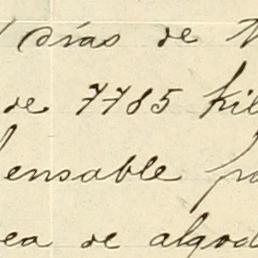 días de
de 7785 kil
ensable
ea de algod